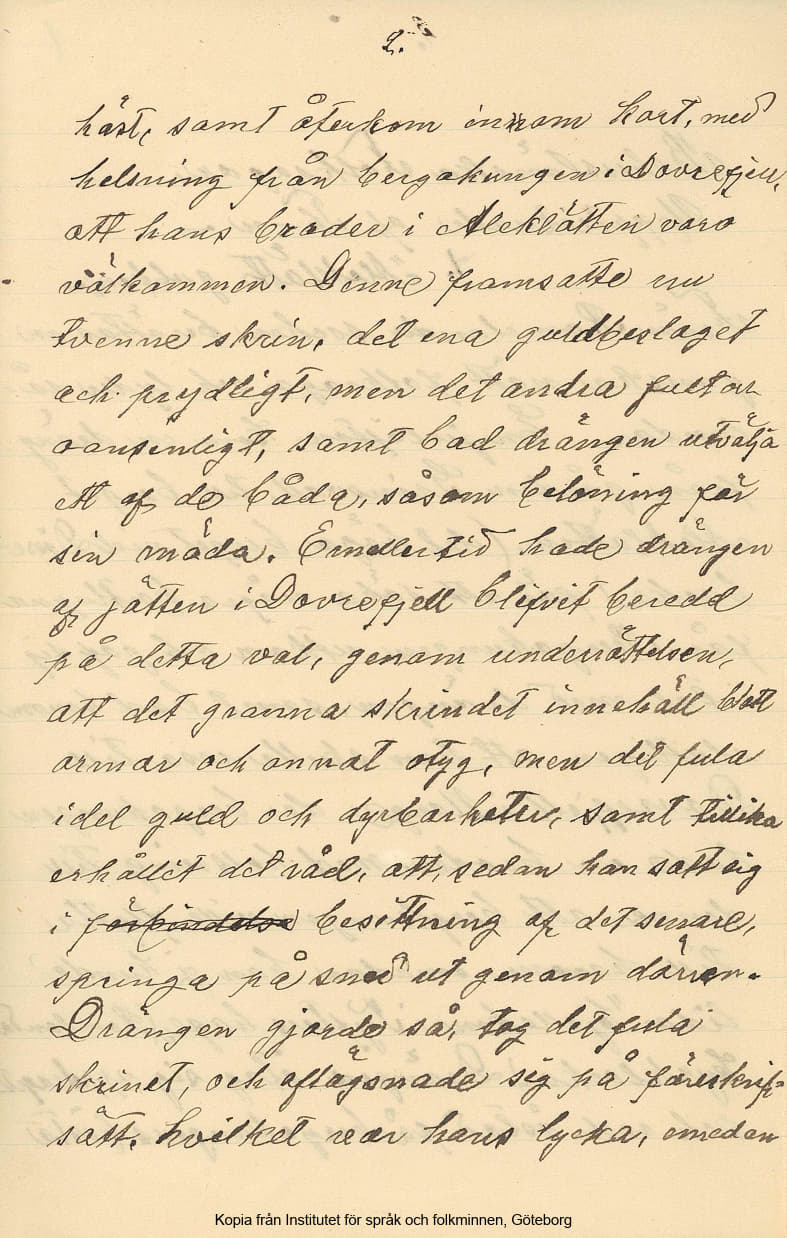 2.
häst, samt återkom innom kort, med
helsning från bergakungen i Dovrefjell,
att hans broder i Aleklätten vore
välkommen. Denne framsatte nu
tvenne skrin, det ena guldbeslaget
och prydligt, men det andra fult och
oansenligt, samt bad drängen utvälja
ett af de båda, såsom belöning för
sin möda. Emellertid hade drängen
af jätten i Dovrefjell blifvit beredd
på detta val, genom underrättelsen,
att det granna skrindet innehöll blott
ormar och annat otyg, men det fula
idel guld och dyrbarheter, samt tillika
erhållit det råd, att, sedan han satt sig
i förbindelse besittning af det senare,
springa på sned ut genom dörren.
Drängen gjorde så, tog det fula
skrinet, och aflägsnade sig på föreskrif-
sätt, hvilket var hans lycka, emedan
Kopia från Institutet för språk och folkminnen, Göteborg